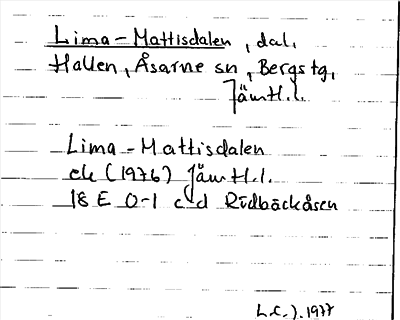 Lima-Mattisdalen, dal.
Hallen, Åsarne sn, Bergs tg,
Jämtl.l.
Lima-Mattisdalen
ek (1976) Jämtl.l.
18 E 0-1 c-d Rödbäckåsen
L.C.J. 1977